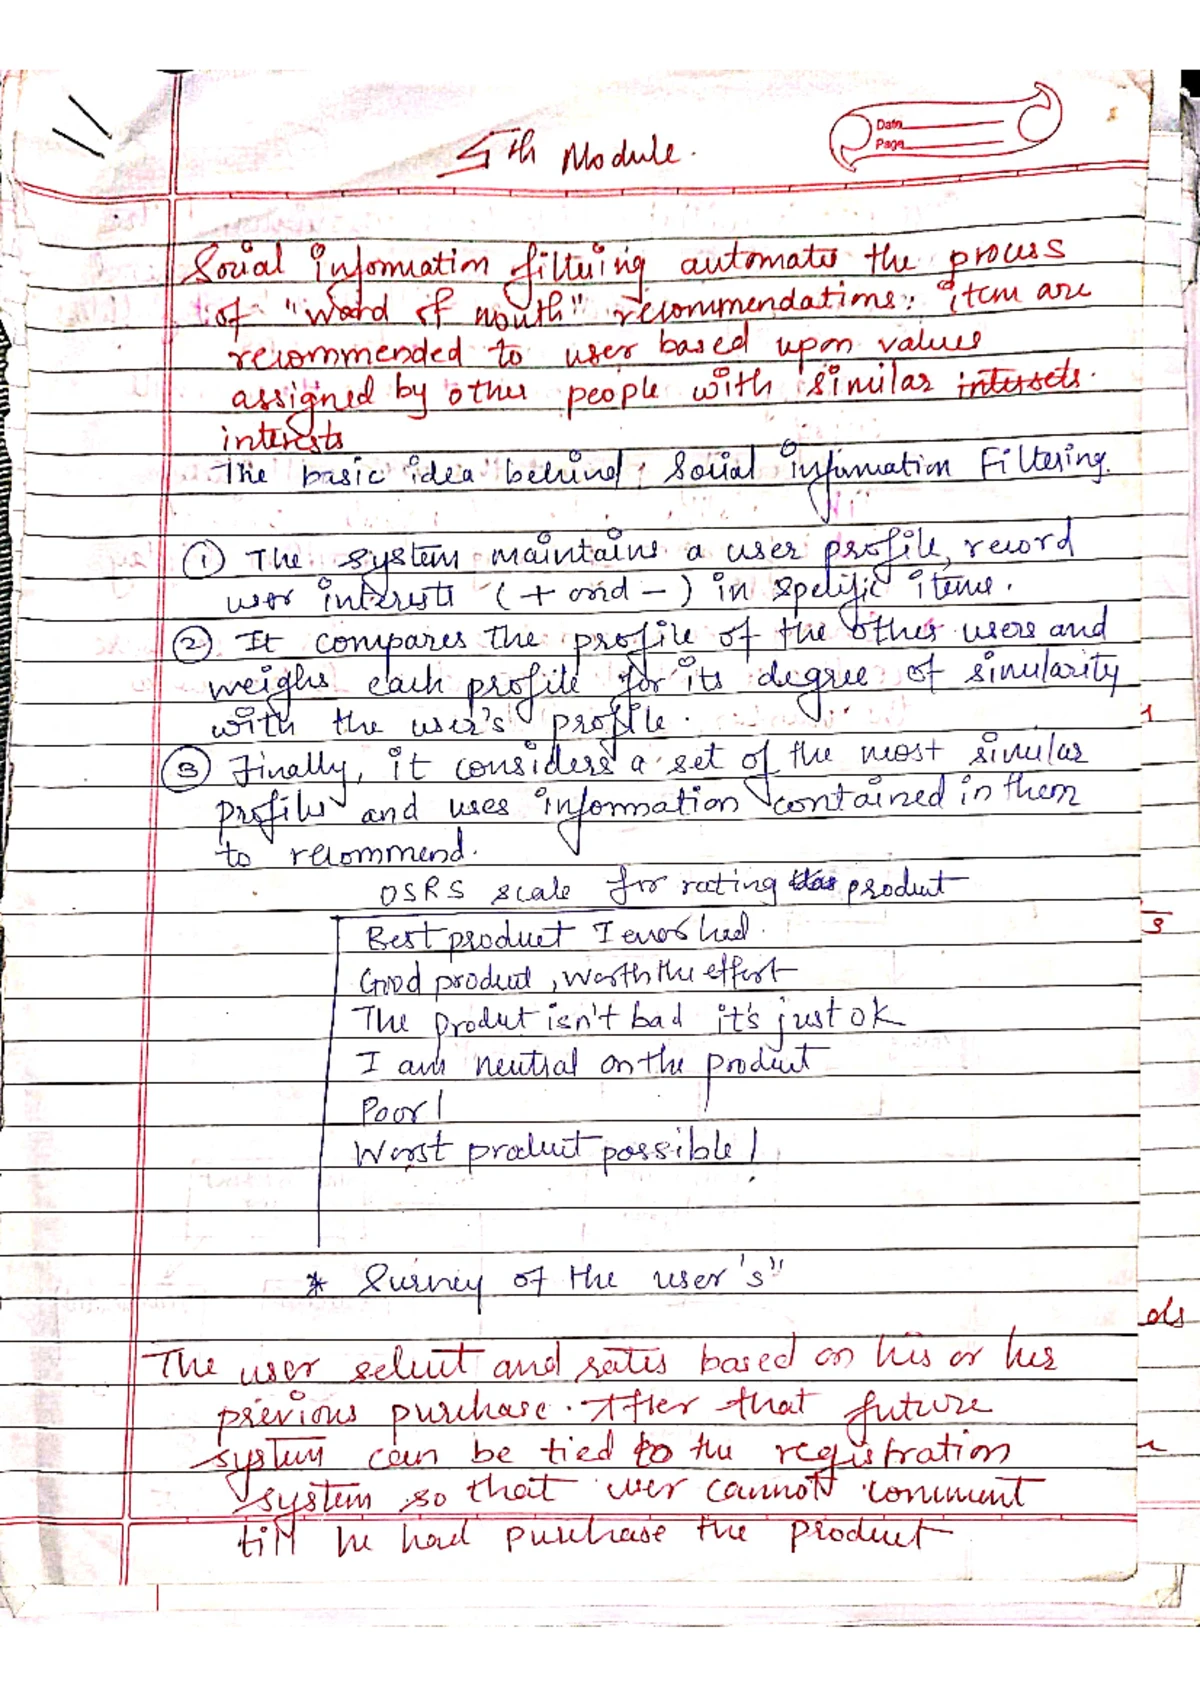 Date
Page
5th Module.
Social information filtering automates the process
of "word of mouth" recommendations: item are
recommended to user based upon values
assigned by other people with similar intersets.
interests
The basic idea behind Social Information Filtering.
① The system maintains a user profile, record
user interests (+ and -) in specific items.
② It compares the profile of the other users and
weighs each profile for its degree of similarity
with the user's profile.
③ Finally, it considers a set of the most similar
profiles and uses information contained in them
to recommend.
OSRS scale for rating product
Best product I ever had.
Good product, worth the effort
The product isn't bad it's just ok
I am neutral on the product
Poor!
Worst product possible!
* Survey of the user's"
The user select and rates based on his or her
previous purchase. After that future
system can be tied to the registration
system so that user cannot comment
till he had purchase the product
1
3
ols